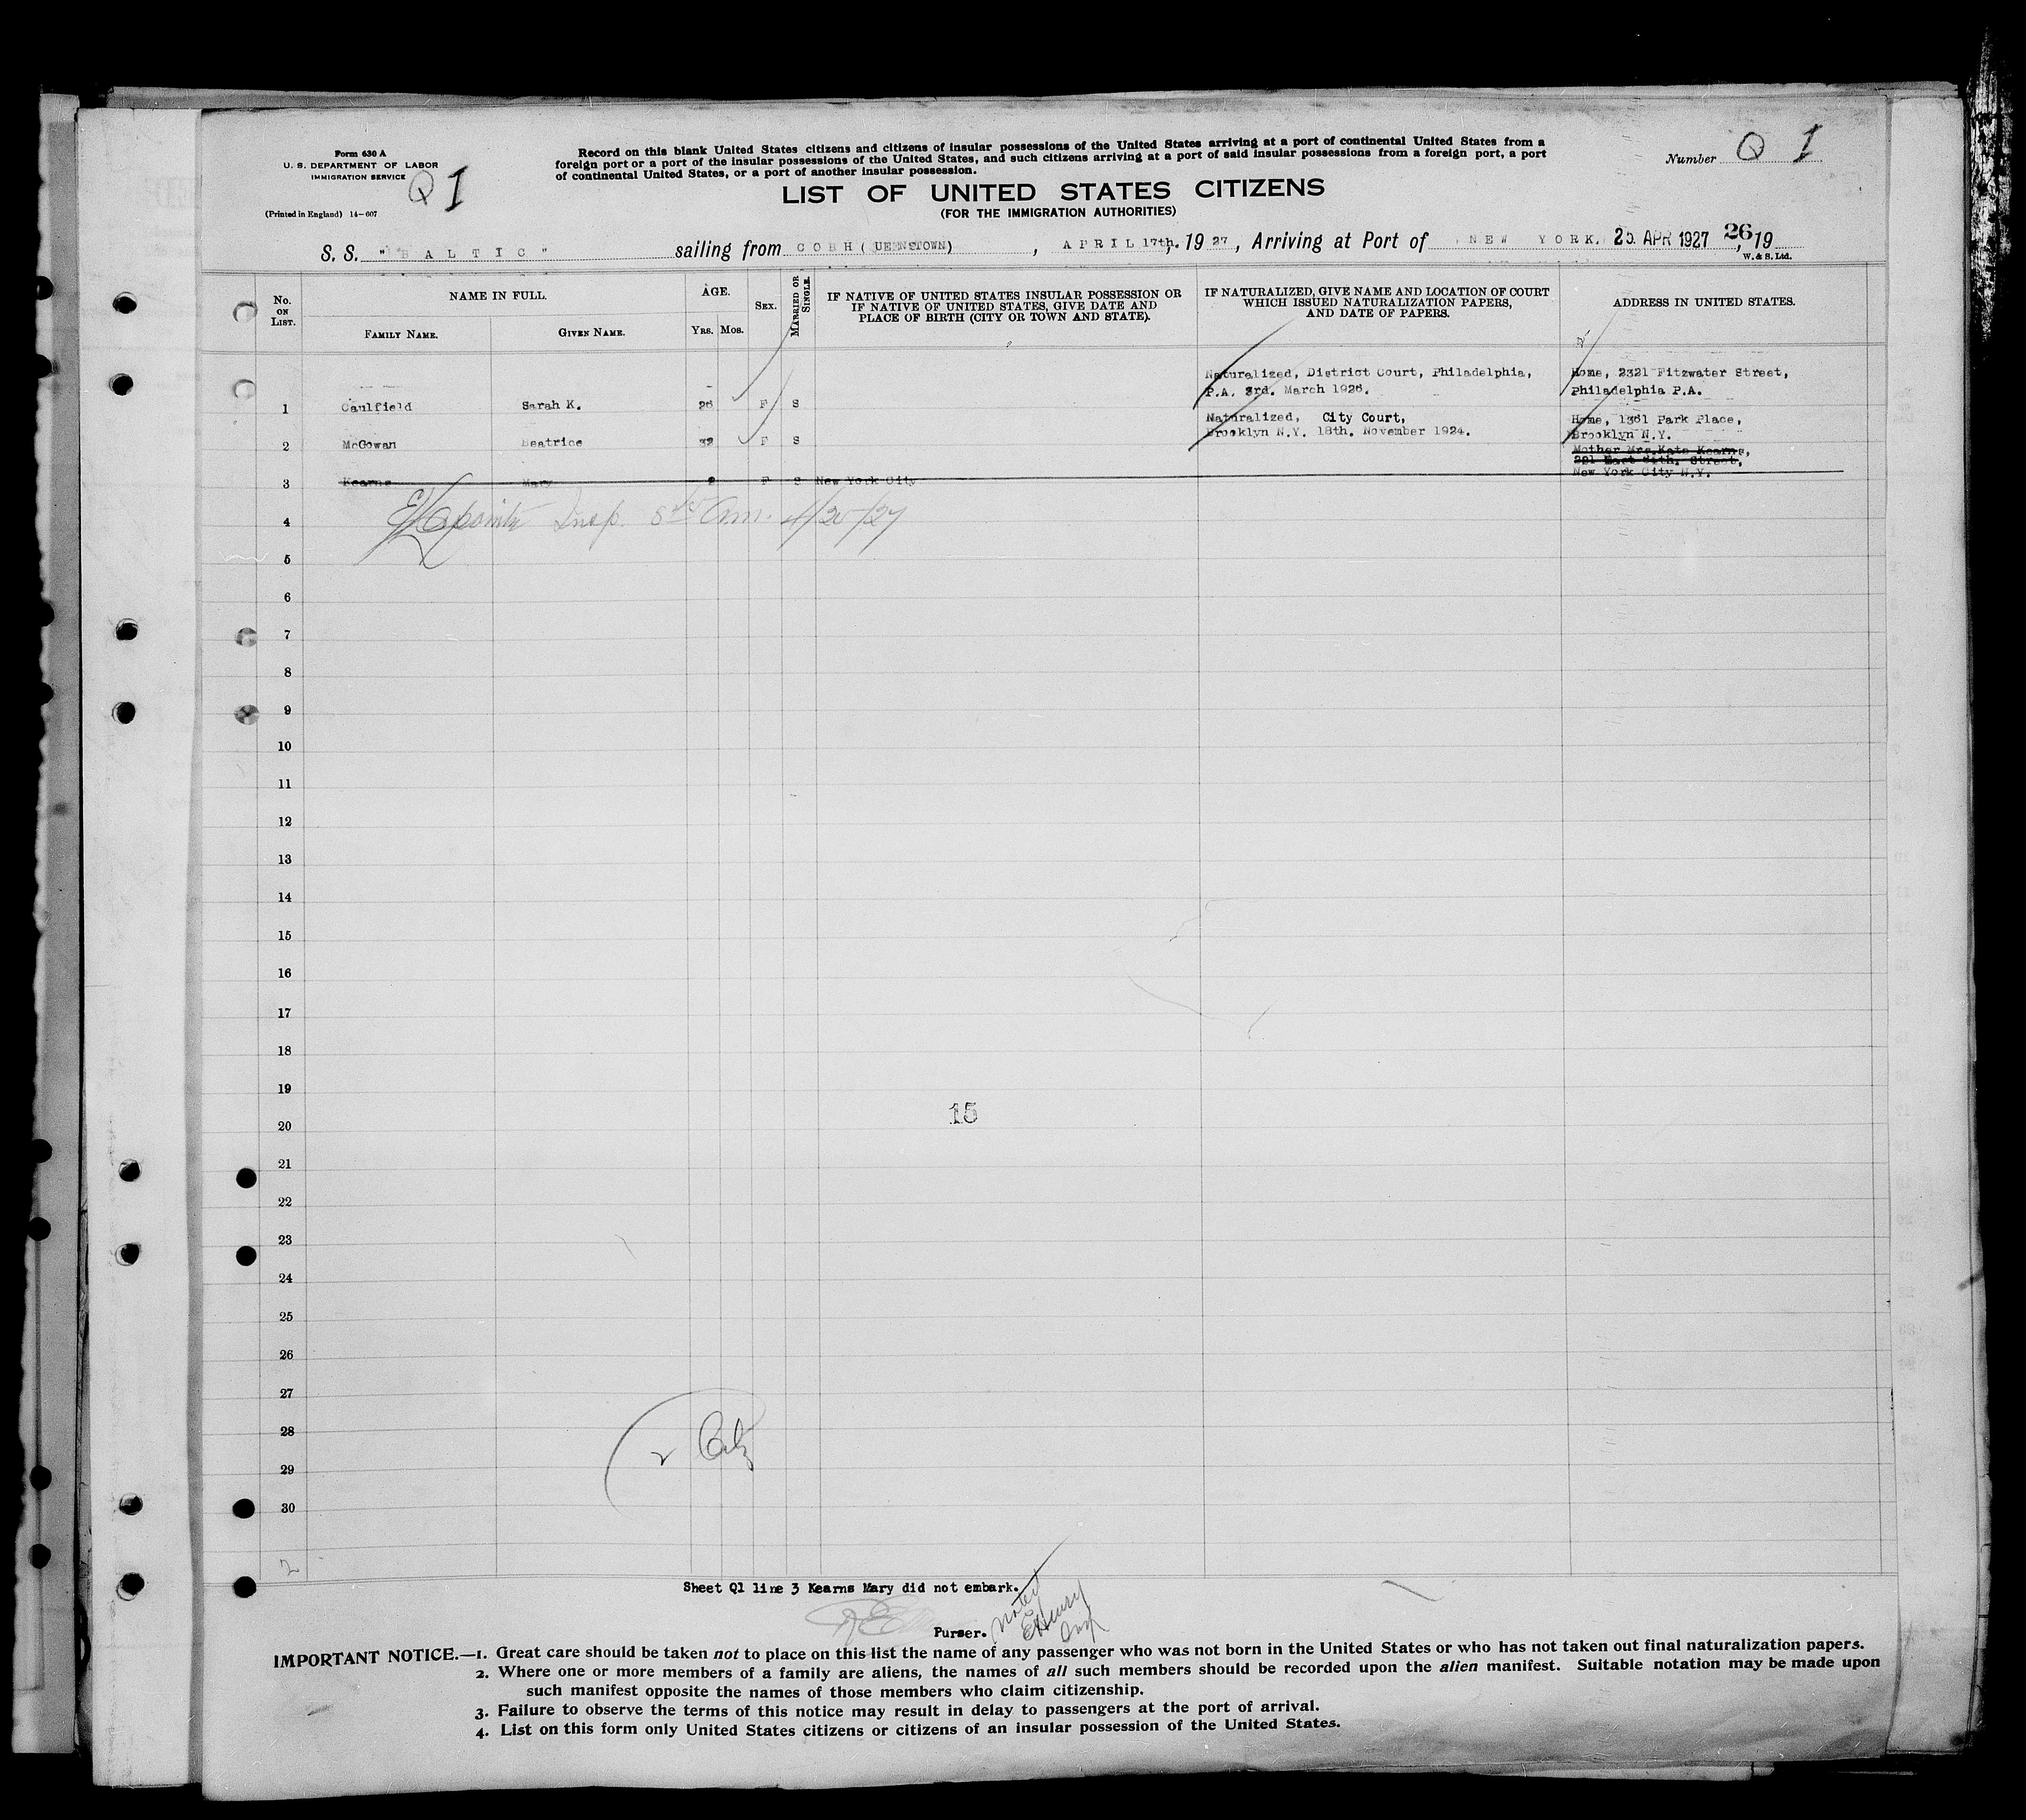 Form 630 A
U. S. DEPARTMENT OF LABOR
IMMIGRATION SERVICE
Q I
(Printed in England) 14-607
Record on this blank United States citizens and citizens of insular possessions of the United States arriving at a port of continental United States from a
foreign port or a port of the insular possessions of the United States, and such citizens arriving at a port of said insular possessions from a foreign port, a port
of continental United States, or a port of another insular possession.
Number Q I
LIST OF UNITED STATES CITIZENS
(FOR THE IMMIGRATION AUTHORITIES)
S. S. "BALTIC" sailing from COBH (UEENSTOWN), APRIL 17th, 1927, Arriving at Port of NEW YORK. 25 APR 1927 26, 19
W. & S. Ltd.
No. ON LIST.
NAME IN FULL.
FAMILY NAME.
GIVEN NAME.
AGE.
YRS. MOS.
SEX.
MARRIED OR SINGLE.
IF NATIVE OF UNITED STATES INSULAR POSSESSION OR
IF NATIVE OF UNITED STATES, GIVE DATE AND
PLACE OF BIRTH (CITY OR TOWN AND STATE).
IF NATURALIZED, GIVE NAME AND LOCATION OF COURT
WHICH ISSUED NATURALIZATION PAPERS,
AND DATE OF PAPERS.
ADDRESS IN UNITED STATES.
Naturalized, District Court, Philadelphia, Home, 2321 Fitzwater Street,
P.A. 3rd. March 1926. Philadelphia P.A.
1 Caulfield Sarah K. 26 F S
Naturalized, City Court, Home, 1361 Park Place,
Brooklyn N.Y. 18th. November 1924. Brooklyn N.Y.
2 McGowan Beatrice 32 F S
Mother Mrs.Kate Kearns,
Street,
New York City N.Y.
3 Kearns Mary F S New York City
4 Insp.
5
6
7
8
9
10
11
12
13
14
15
16
17
18
19
15
20
21
22
23
24
25
26
27
28
2
29
30
2
Sheet Q1 line 3 Kearns Mary did not embark.
Noted
Purser.
IMPORTANT NOTICE.—1. Great care should be taken not to place on this list the name of any passenger who was not born in the United States or who has not taken out final naturalization papers.
2. Where one or more members of a family are aliens, the names of all such members should be recorded upon the alien manifest. Suitable notation may be made upon
such manifest opposite the names of those members who claim citizenship.
3. Failure to observe the terms of this notice may result in delay to passengers at the port of arrival.
4. List on this form only United States citizens or citizens of an insular possession of the United States.